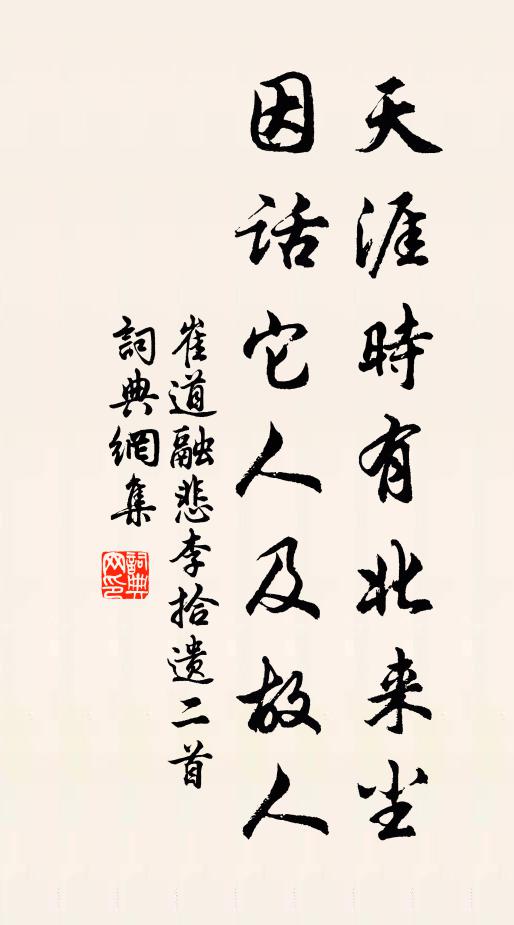 天涯時有北来尘
因话它人及故人
崔道融悲李拾遗二首
詞典網集
詞典网印